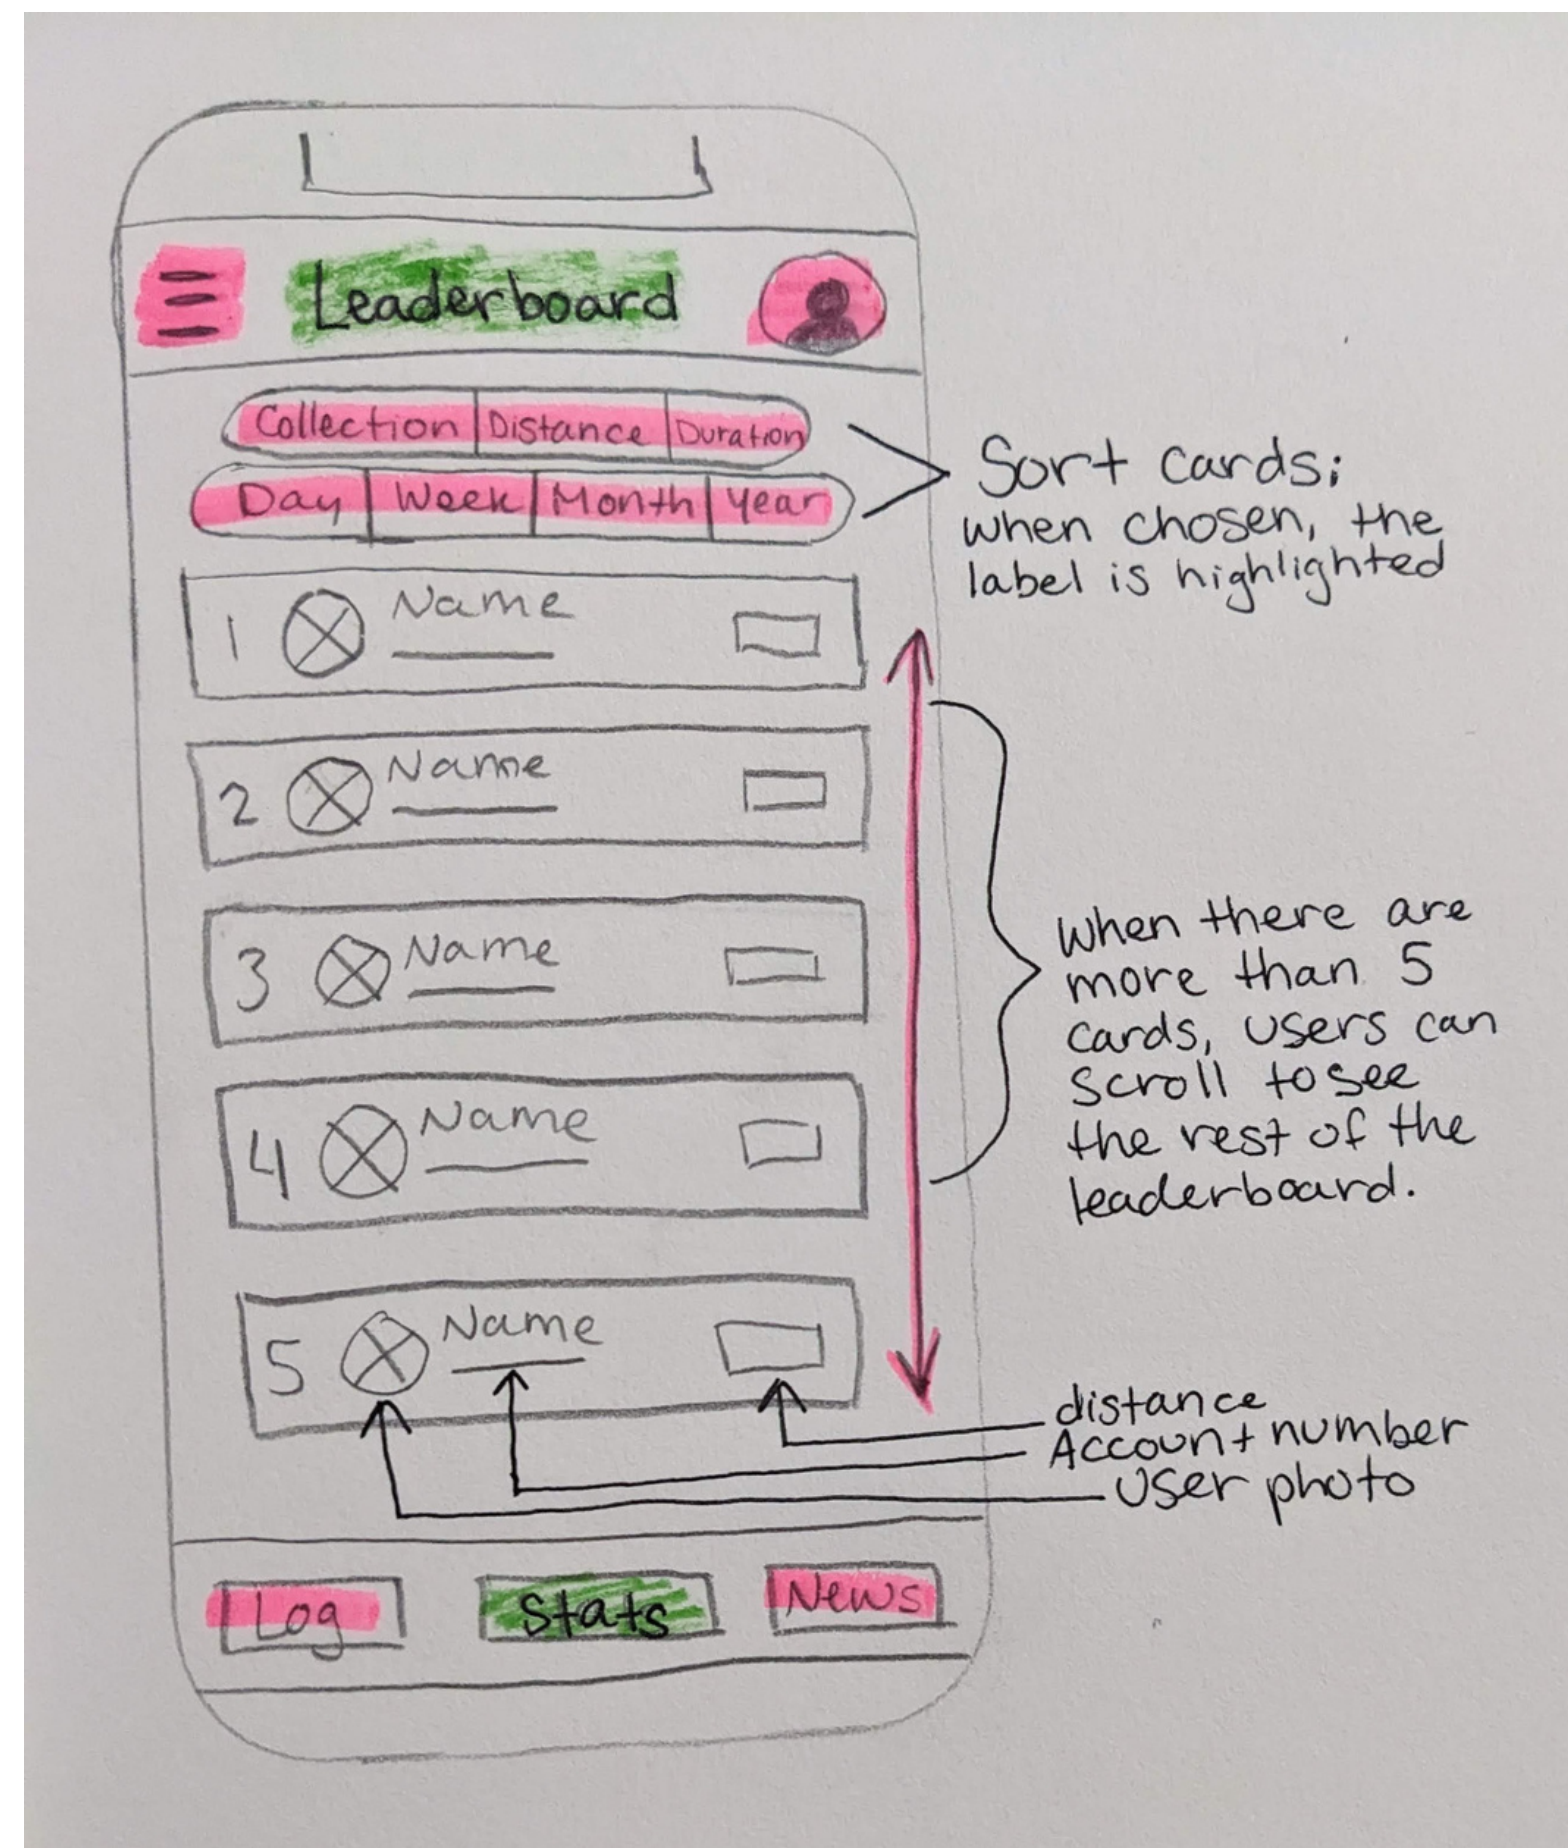 Leaderboard
Collection Distance Duration
Day Week Month Year
Sort cards;
when chosen, the
label is highlighted
1 Name
2 Name
3 Name
4 Name
5 Name
When there are
more than 5
cards, users can
scroll to see
the rest of the
leaderboard.
distance
Account number
User photo
Log Stats News